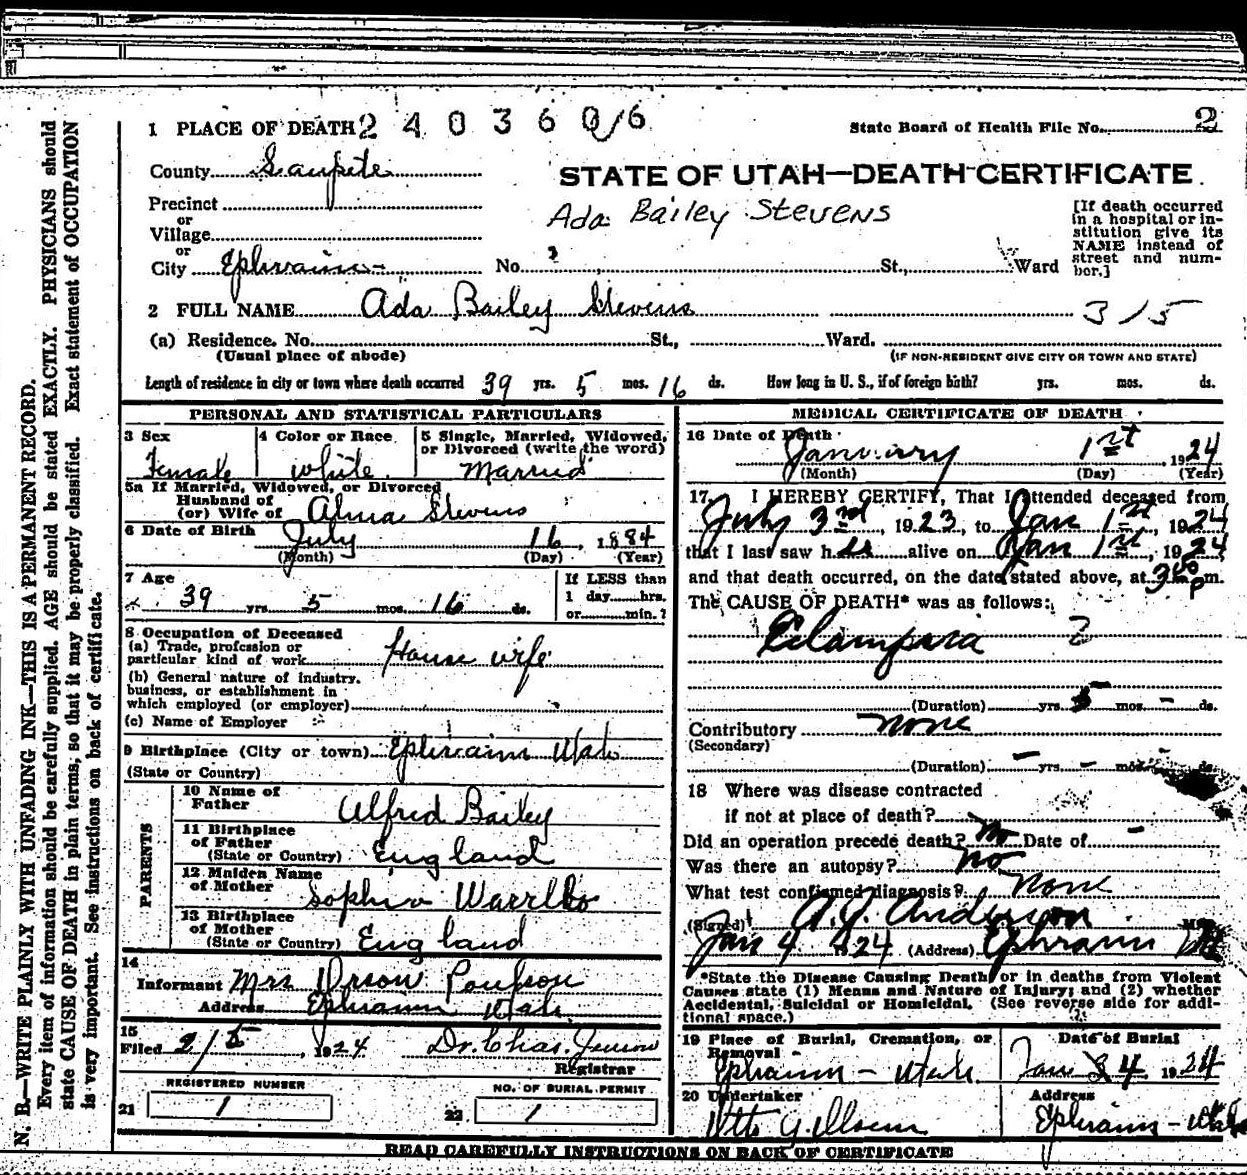 1 PLACE OF DEATH 2 4 0 3 6 0 6
State Board of Health File No. 2
County Sanpete
STATE OF UTAH—DEATH CERTIFICATE
Ada Bailey Stevens
Precinct
or
Village
or
City Ephraim No. St., Ward
[If death occurred
in a hospital or in-
stitution give its
NAME instead of
street and num-
ber.]
2 FULL NAME Ada Bailey Stevens 315
(a) Residence. No. St., Ward.
(Usual place of abode) (IF NON-RESIDENT GIVE CITY OR TOWN AND STATE)
Length of residence in city or town where death occurred 39 yrs. 5 mos. 16 ds. How long in U. S., if of foreign birth? yrs. mos. ds.
PERSONAL AND STATISTICAL PARTICULARS
3 Sex
Female
4 Color or Race
White
5 Single, Married, Widowed,
or Divorced (write the word)
Married
5a If Married, Widowed, or Divorced
Husband of
(or) Wife of Alma Stevens
6 Date of Birth July 16, 1884
(Month) (Day) (Year)
7 Age
39 yrs. 5 mos. 16 ds.
If LESS than
1 day hrs.
or min.?
8 Occupation of Deceased
(a) Trade, profession or
particular kind of work House wife
(b) General nature of industry,
business, or establishment in
which employed (or employer)
(c) Name of Employer
9 Birthplace (City or town) Ephraim Utah
(State or Country)
PARENTS
10 Name of
Father Alfred Bailey
11 Birthplace
of Father
(State or Country) England
12 Maiden Name
of Mother Sophia
13 Birthplace
of Mother
(State or Country) England
14
Informant Mrs Orson Poulson
Address Ephraim Utah
15
Filed 2/5, 1924 Dr. Chas. Jenson
Registrar
REGISTERED NUMBER
21 1
NO. OF BURIAL PERMIT
22 1
MEDICAL CERTIFICATE OF DEATH
16 Date of Death
January 1st 1924
(Month) (Day) (Year)
17 I HEREBY CERTIFY, That I attended deceased from
July 3rd, 1923, to Jan 1st, 1924
that I last saw her alive on Jan 1st, 1924
and that death occurred, on the date stated above, at 3 00 p m.
The CAUSE OF DEATH* was as follows:
Eclampsia
(Duration) yrs. 5 mos. - ds.
Contributory none
(Secondary)
(Duration) - yrs. - mos. ds.
18 Where was disease contracted
if not at place of death?
Did an operation precede death? No Date of -
Was there an autopsy? No
What test confirmed diagnosis? None
(Signed) A. J. Anderson M.D.
Jan 4 1924 (Address) Ephraim Ut
*State the Disease Causing Death, or in deaths from Violent
Causes state (1) Means and Nature of Injury; and (2) whether
Accidental, Suicidal or Homicidal. (See reverse side for addi-
tional space.)
19 Place of Burial, Cremation, or
Removal
Ephraim - Utah
Date of Burial
Jan 4 1924
20 Undertaker
Otto G. Olsen
Address
Ephraim - Utah
READ CAREFULLY INSTRUCTIONS ON BACK OF CERTIFICATE
N. B.—WRITE PLAINLY WITH UNFADING INK—THIS IS A PERMANENT RECORD.
Every item of information should be carefully supplied. AGE should be stated EXACTLY. PHYSICIANS should
state CAUSE OF DEATH in plain terms, so that it may be properly classified. Exact statement of OCCUPATION
is very important. See instructions on back of certificate.